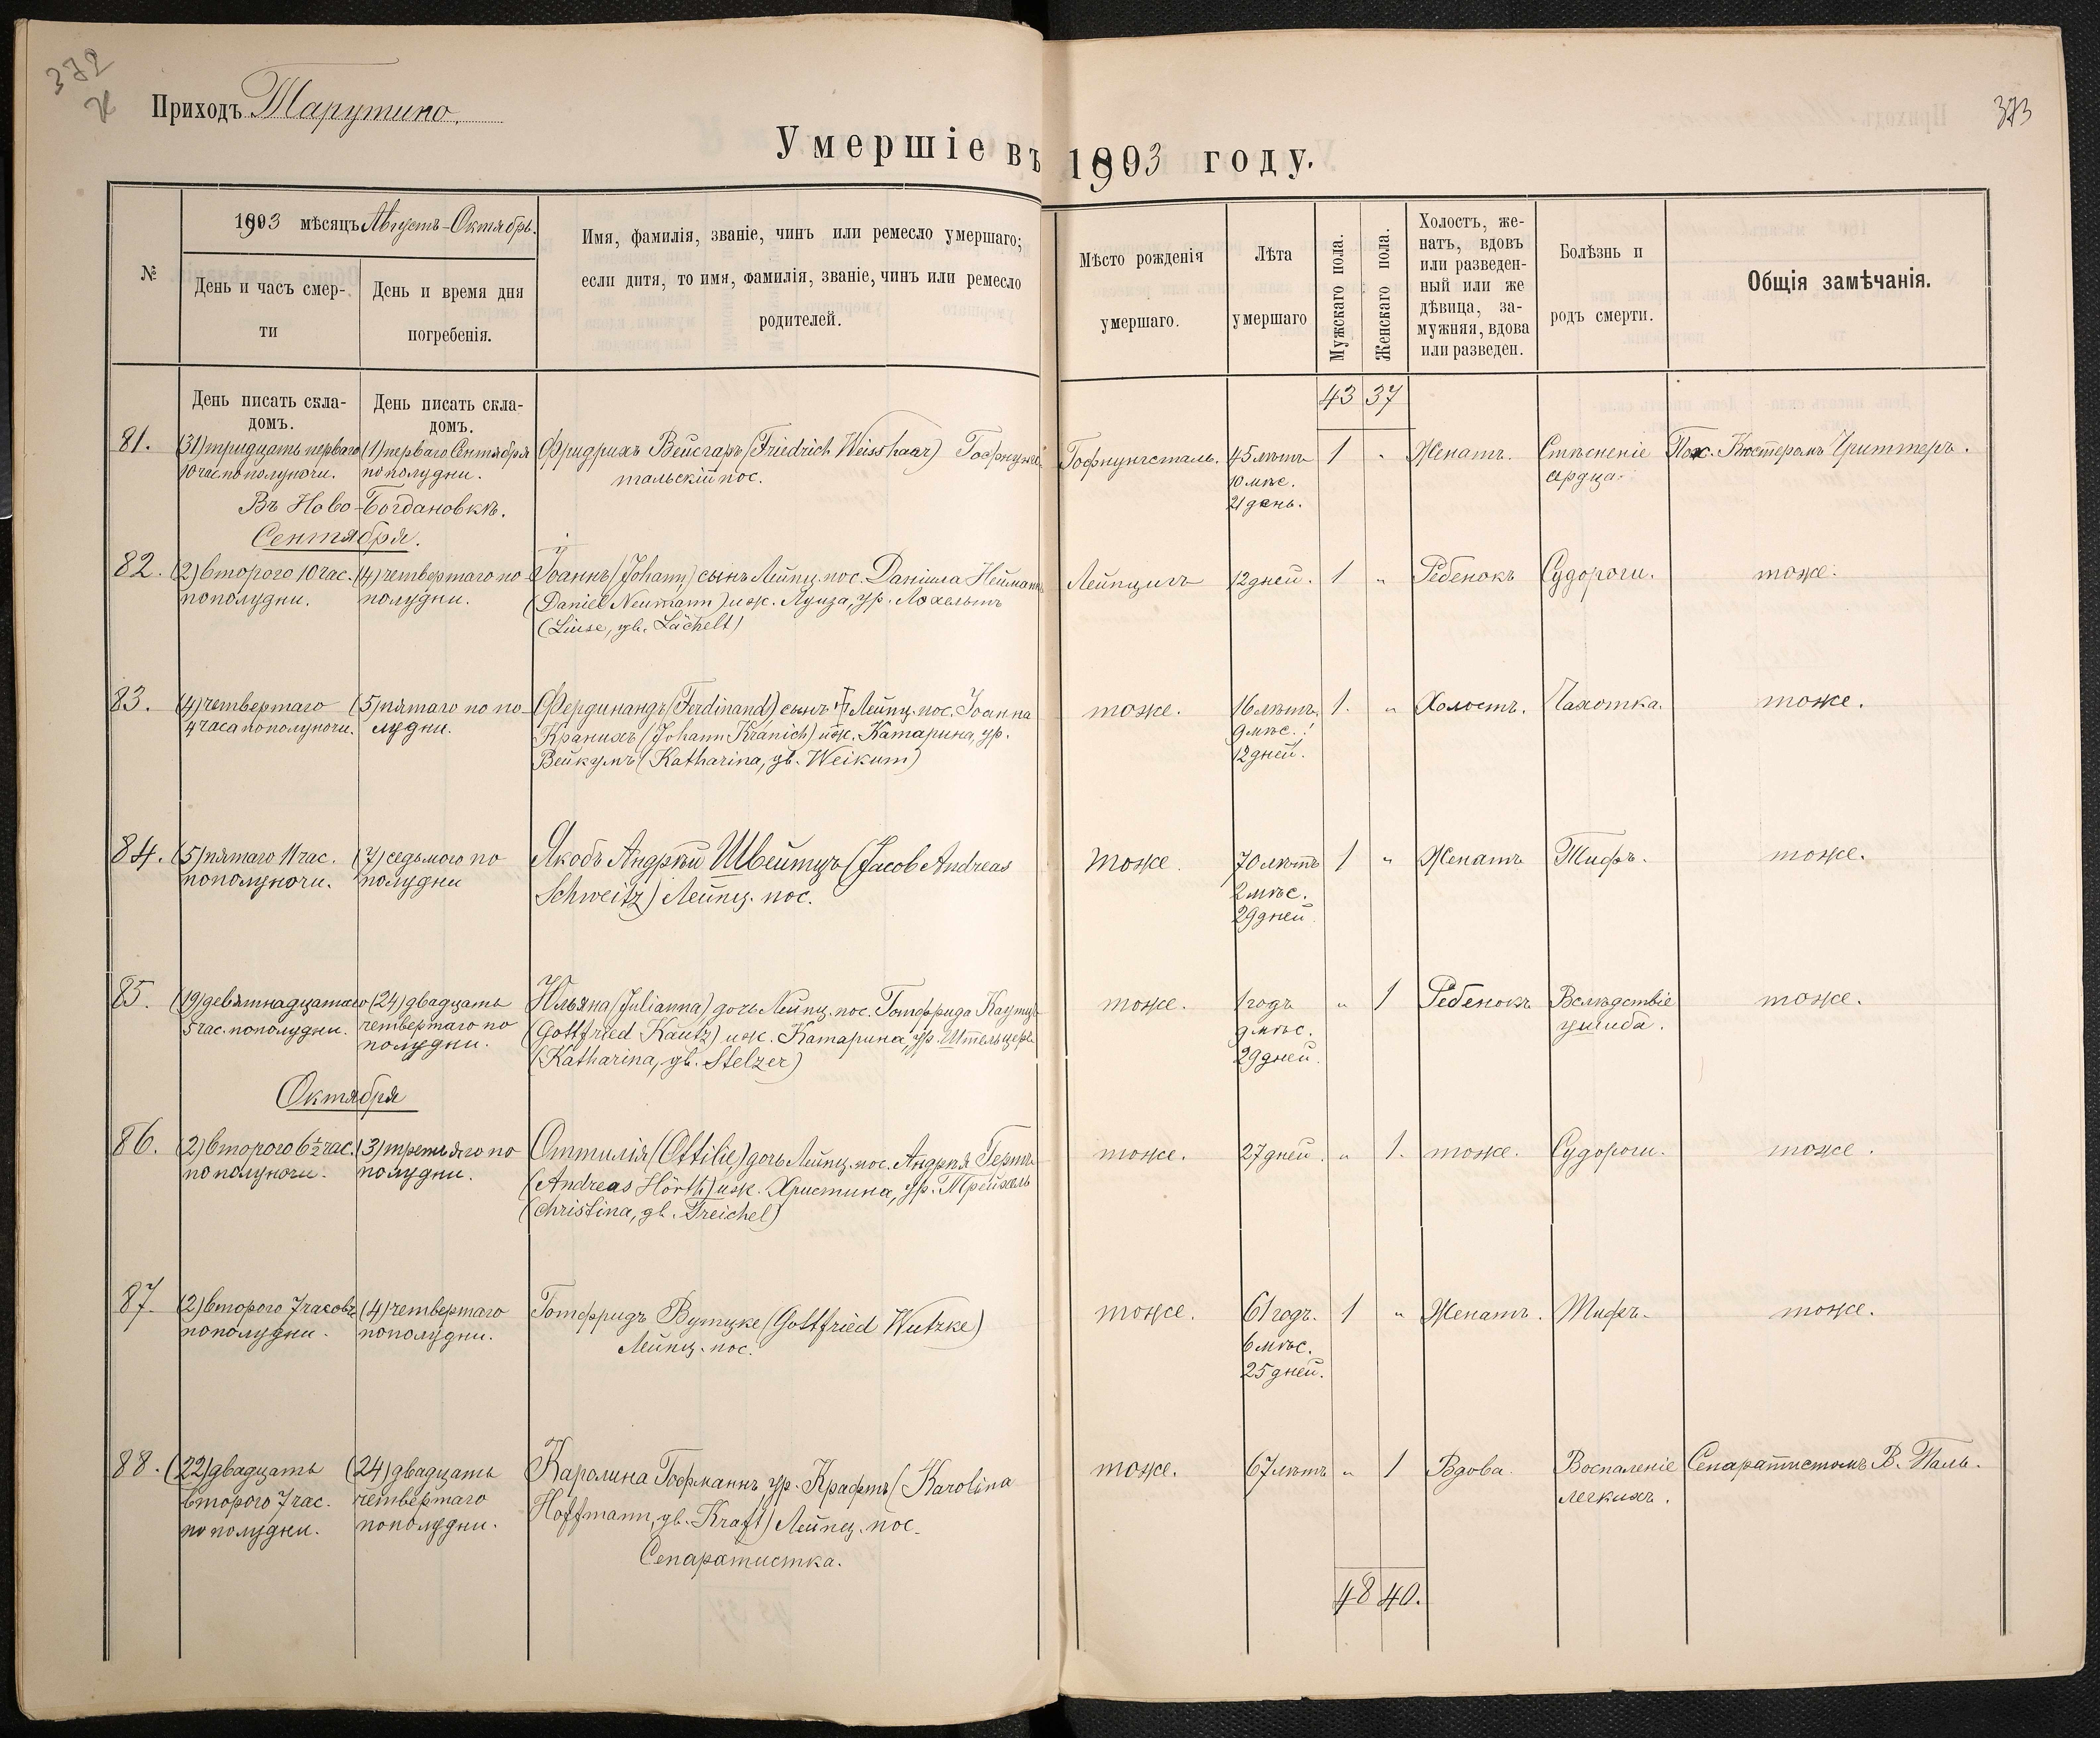 372
373
Приходъ Тарутино.
Умершіе въ 1893 году.
№
1893 мѣсяцъ Августъ-Октябрь.
День и часъ смерти
День и время дня погребенія.
Имя, фамилія, званіе, чинъ или ремесло умершаго;
если дитя, то имя, фамилія, званіе, чинъ или ремесло
родителей.
Мѣсто рожденія
умершаго.
Лѣта
умершаго
Мужскаго пола.
Женскаго пола.
Холостъ, же-
натъ, вдовъ
или разведен-
ный или же
дѣвица, за-
мужняя, вдова
или разведен.
Болѣзнь и
родъ смерти.
Общія замѣчанія.
День писать скла-
домъ.
День писать скла-
домъ.
43 37
81.
(31) тридцать перваго
10 час. по полуночи.
(1) перваго Сентября
по полудни.
Въ Ново-Богдановкѣ.
Фридрихъ Вейсгаръ (Friedrich Weisshaar) Гофнунгс-
тальскій пос.
Гофнунгсталь.
45 лѣтъ
10 мѣс.
21 день.
1 "
Женатъ.
Стѣсненіе
сердца.
Пох. Кюстеромъ Гриттеръ.
Сентября.
82.
(2) второго 10 час.
пополудни.
(4) четвертаго по-
полудни.
Іоаннъ (Johann) сынъ Лейпц. пос. Даніила Нейманъ
(Daniel Neumann) и ж. Луиза, ур. Лэхельтъ
(Luise, gb. Lächelt)
Лейпцигъ
12 дней.
1 "
Ребенокъ
Судороги.
тоже.
83.
(4) четвертаго
4 часа пополуночи.
(5) пятаго по по-
лудни.
Фердинандъ (Ferdinand) сынъ † Лейпц. пос. Іоанна
Кранихъ (Johann Kranich) и ж. Катарина, ур.
Вейкумъ (Katharina, gb. Weikum)
тоже.
16 лѣтъ.
9 мѣс.
12 дней.
1. "
Холостъ.
Чахотка.
тоже.
84.
(5) пятаго 11 час.
пополуночи.
(7) седьмого по
полудни
Якобъ Андрей Швейтцъ (Jacob Andreas
Schweitz) Лейпц. пос.
тоже.
70 лѣтъ
2 мѣс.
29 дней
1 "
Женатъ
Тифъ.
тоже.
85.
(19) девятнадцатаго
5 час. пополудни.
(24) двадцать
четвертаго по
полудни.
Юльяна (Julianna) дочь Лейпц. пос. Готфрида Каутцъ
(Gottfried Kautz) и ж. Катарина, ур. Штельцеръ
(Katharina, gb. Stelzer)
тоже.
1 годъ
9 мѣс.
29 дней.
" 1
Ребенокъ
Вслѣдствіе
ушиба.
тоже.
Октября
86.
(2) второго 6½ час.
по полуночи.
(3) третьяго по
полудни.
Оттилія (Ottilie) дочь Лейпц. пос. Андрея Гертъ
(Andreas Hörth) и ж. Христина, ур. Трейхель
(Christina, gb. Treichel)
тоже.
27 дней.
" 1.
тоже.
Судороги.
тоже.
87.
(2) второго 7 часовъ
пополудни.
(4) четвертаго
пополудни.
Готфридъ Вутцке (Gottfried Wutzke)
Лейпц. пос.
тоже.
61 годъ.
6 мѣс.
25 дней.
1 "
Женатъ.
Тифъ.
тоже.
88.
(22) двадцать
второго 7 час.
по полудни.
(24) двадцать
четвертаго
пополудни.
Каролина Гофманнъ, ур. Крафтъ (Karolina
Hoffmann, gb. Kraft) Лейпц. пос.
Сепаратистка.
тоже.
67 лѣтъ
" 1
Вдова.
Воспаленіе
легкихъ.
Сепаратистомъ В. Паль.
48 40.